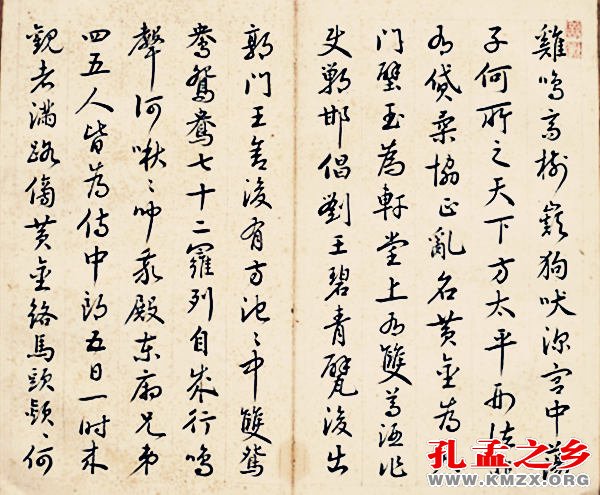 雞鳴高樹巔狗吠深宮中蕩
子何所之天下方太平刑法非
有貸柔協正亂名黃金為
門璧玉為軒堂上有雙尊酒作
使邯鄲倡劉王碧青甓後出
郭門王舍後有方池〻中雙鴛
鴦鴛鴦七十二羅列自成行鳴
聲何啾〻聞我殿東廂兄弟
四五人皆為侍中郎五日一時來
觀者滿路傍黃金絡馬頭熲〻何
孔孟之乡
WWW.KMZX.ORG